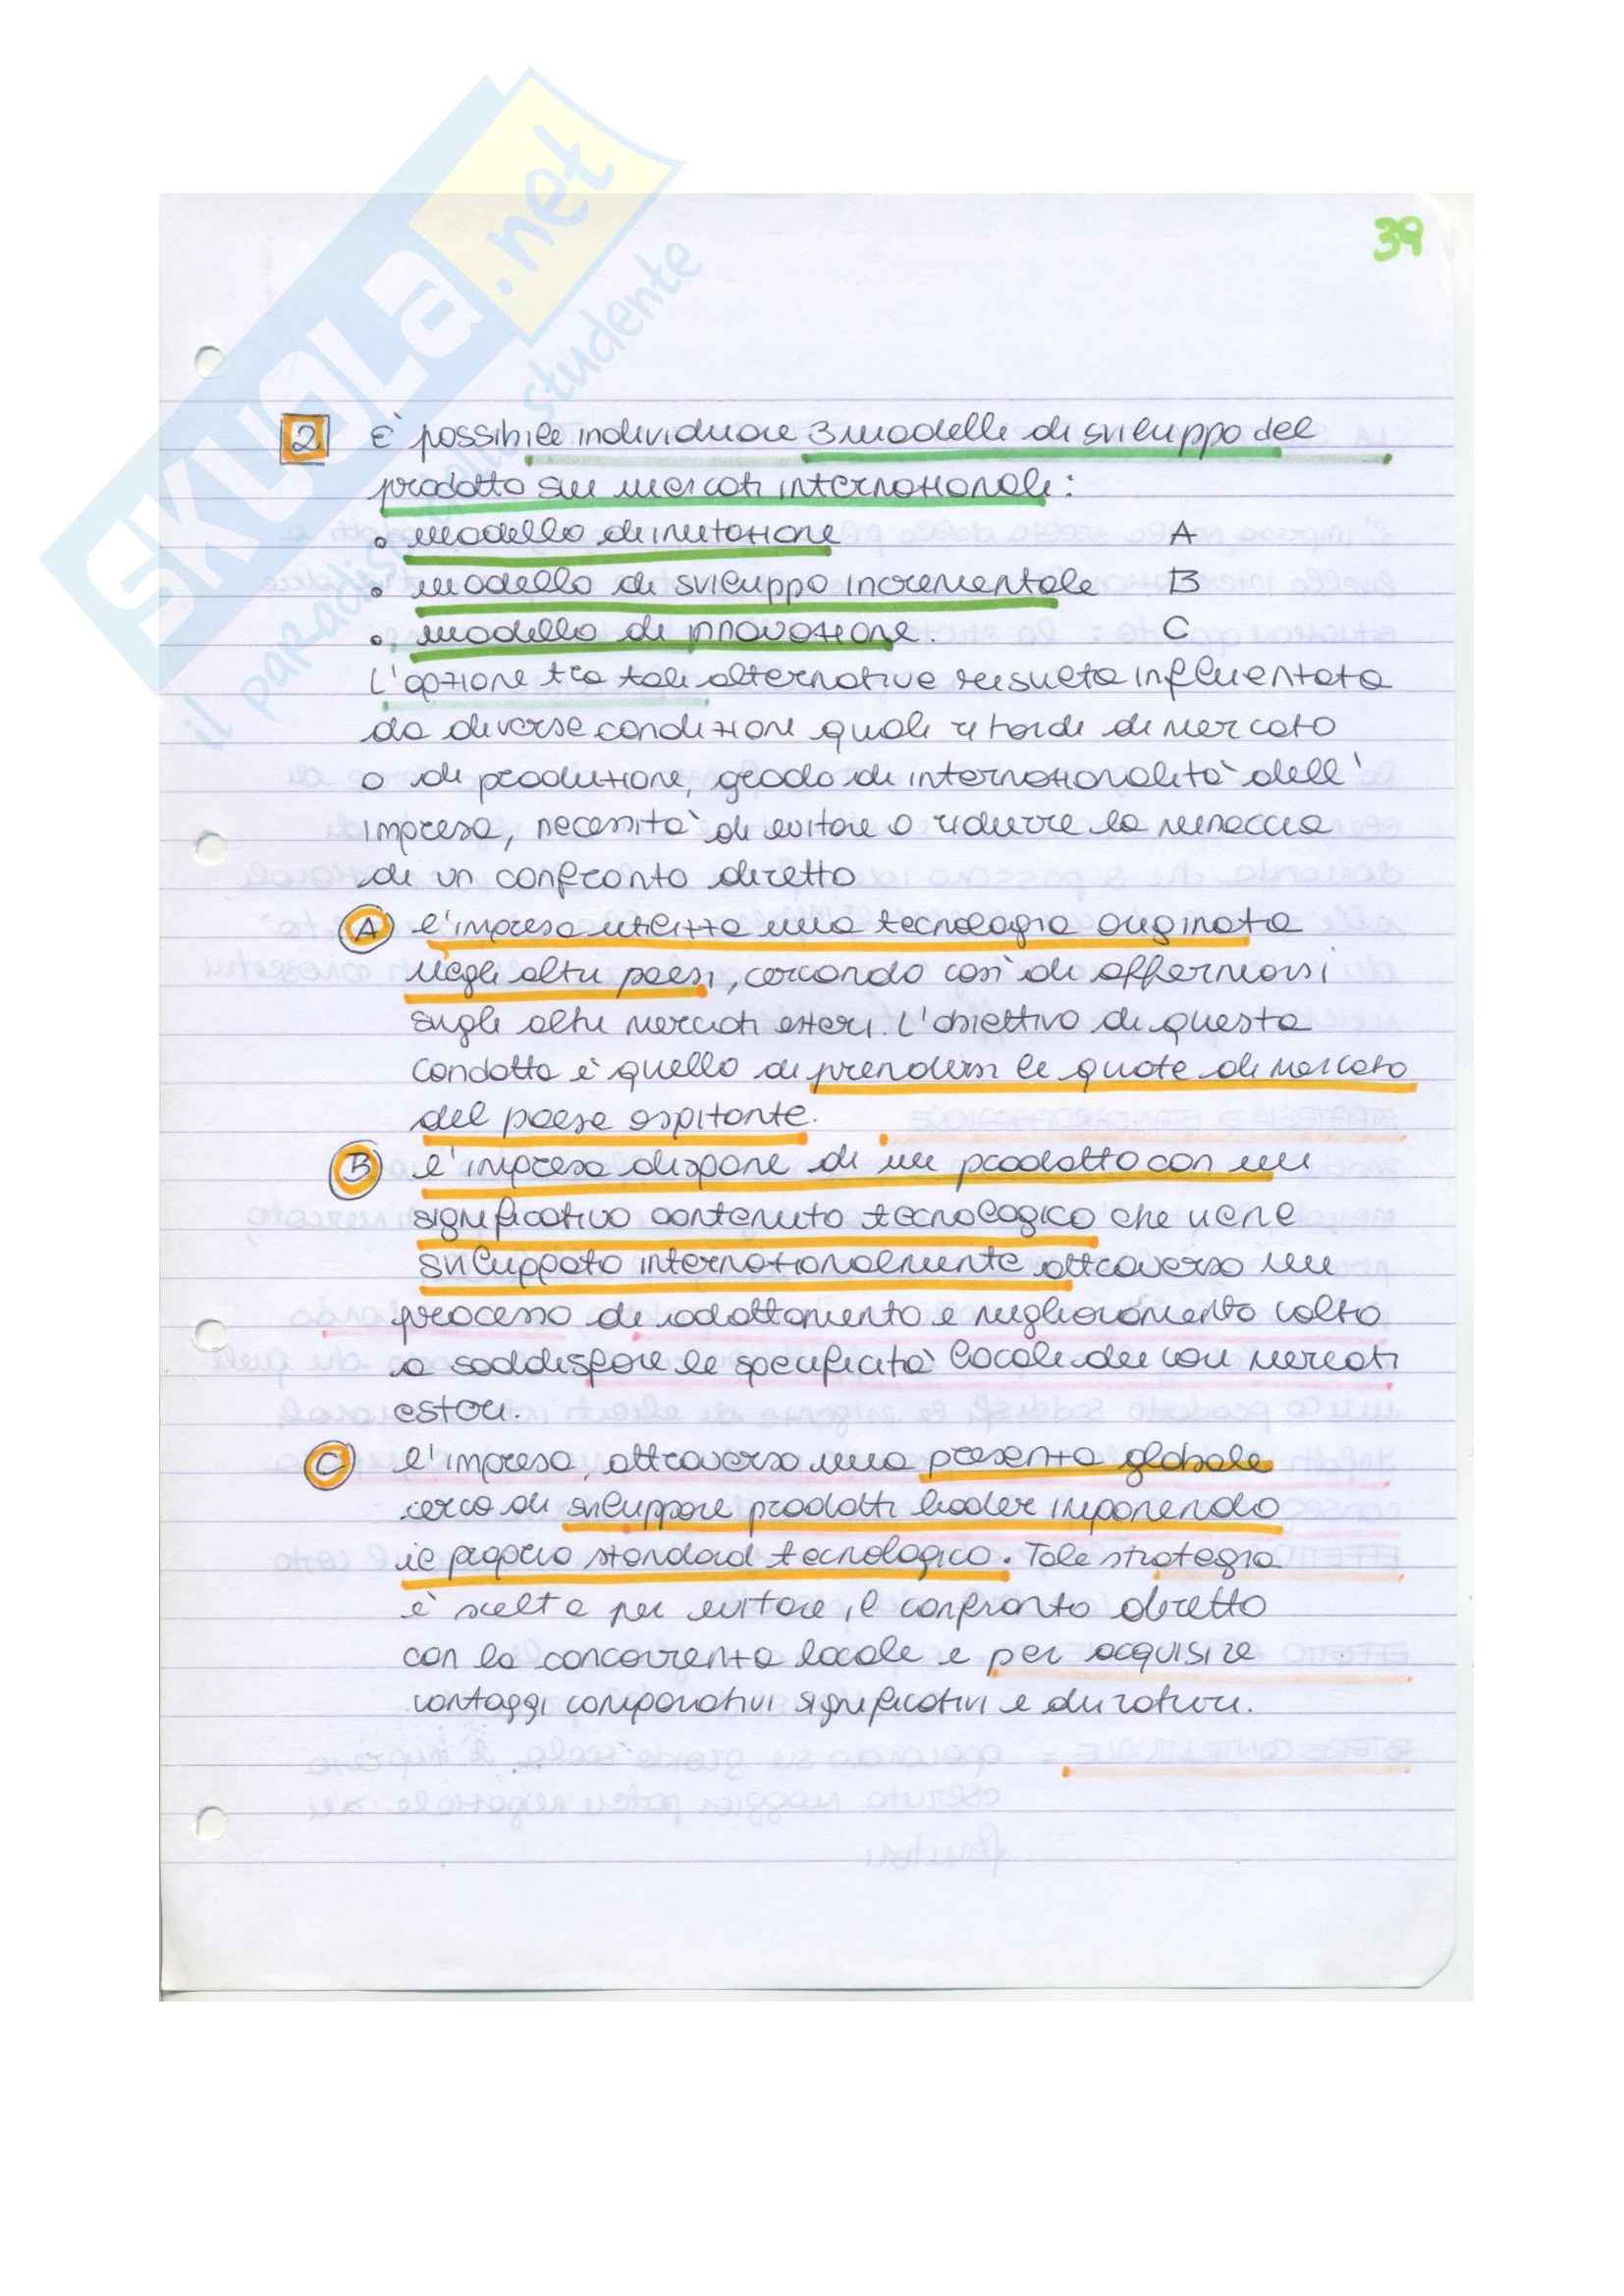 SKUOLA.net
il paradiso dello studente
39
2 E' possibile individuare 3 modelli di sviluppo del
prodotto sui mercati internazionali:
• modello di imitazione A
• modello di sviluppo incrementale B
• modello di innovazione. C
L'opzione tra tali alternative risulta influenzata
da diverse condizioni quali ritardi di mercato
o di produzione, grado di internazionalità dell'
impresa, necessità di evitare o ridurre la minaccia
di un confronto diretto
A l'impresa utilizza una tecnologia originata
negli altri paesi, cercando così di affermarsi
sugli altri mercati esteri. L'obiettivo di questa
condotta è quello di prendersi le quote di mercato
del paese ospitante.
B l'impresa dispone di un prodotto con un
significativo contenuto tecnologico che viene
sviluppato internazionalmente attraverso un
processo di adattamento e miglioramento volto
a soddisfare le specificità locali dei vari mercati
esteri.
C l'impresa, attraverso una presenza globale
cerca di sviluppare prodotti leader imponendo
il proprio standard tecnologico. Tale strategia
è scelta per evitare il confronto diretto
con la concorrenza locale e per acquisire
vantaggi comparativi significativi e duraturi.